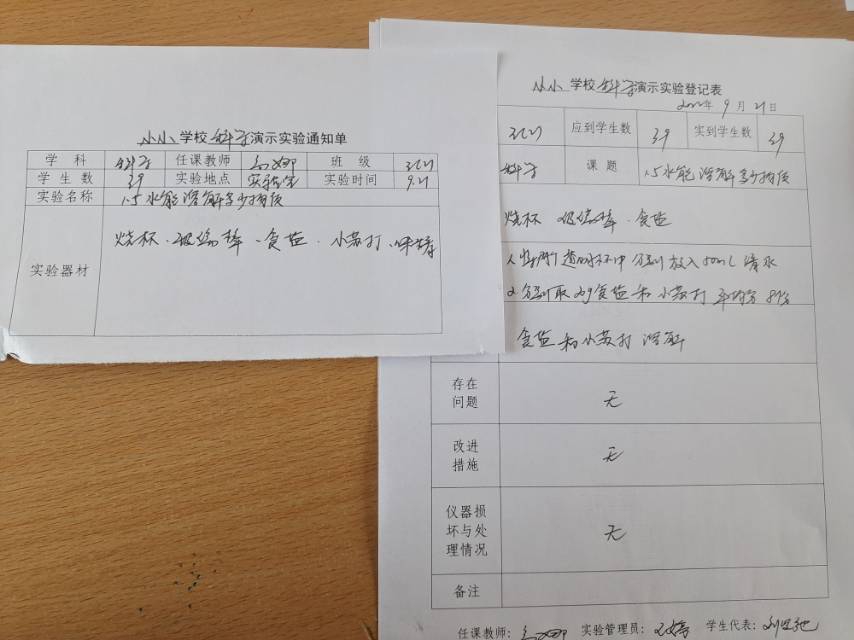 小小学校科学演示实验通知单
学科 科学 任课教师 班级 三(2)
学生数 39 实验地点 实验室 实验时间 9.21
实验名称 1.5水能溶解多少物质
实验器材 烧杯、玻璃棒、食盐、小苏打、味精
小小学校科学演示实验登记表
年9月21日
三(2) 应到学生数 39 实到学生数 39
科学 课题 1.5水能溶解多少物质
烧杯 玻璃棒 食盐
透明杯中 分别放入50mL清水
2 分别取20g食盐和小苏打 平均分8份
食盐和小苏打溶解
存在问题 无
改进措施 无
仪器损坏与处理情况 无
备注
任课教师: 实验管理员: 学生代表: